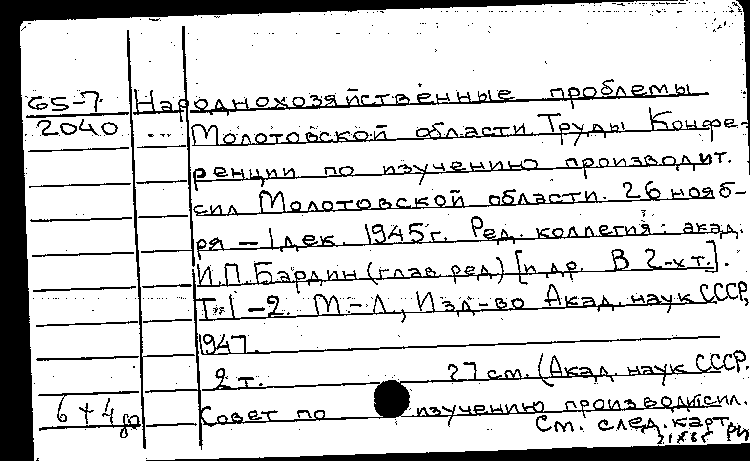 65-7 Народнохозяйственные проблемы
2040 ... Молотовской области. Труды Конфе-
ренции по изучению производит.
сил Молотовской области. 26 нояб-
ря - 1 дек. 1945 г. Ред. коллегия: акад.
И.П. Бардин (глав. ред.) [и др. В 2-х т.].
Т. 1-2. М-Л., Изд-во Акад. наук СССР,
1947.
2 т. 27 см. (Акад. наук СССР.
6+4 Совет по изучению производит. сил.
См. след. карт.